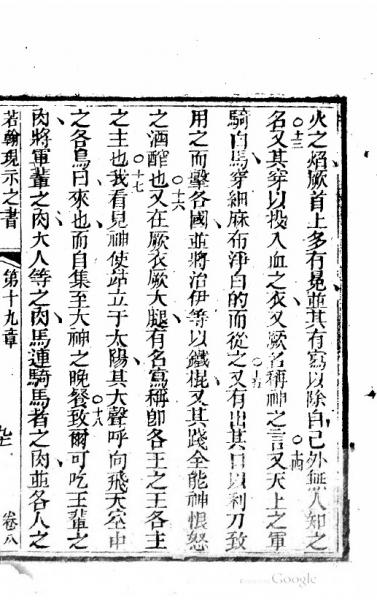 火之焰厥首上多有冕並其有寫以除自己外無人知之
名○十三又其穿以投入血之衣又厥名稱神之言○十四又天上之軍
騎白馬穿細麻布淨白的而從之○十五又有出其口以利刀致
用之而擊各國並將治伊等以鐵棍又其踐全能神恨怒
之酒醡也○十六又在厥衣厥大腿有名寫稱即各王之王各主
之主也○十七我看見神使跡立于太陽其大聲呼向飛天空中
之各鳥曰來也而自集至大神之晚餐○十八致爾可吃王輩之
肉將軍輩之肉大人等之肉馬連騎馬者之肉並各人之
若翰現示之書
第十九章
卷八
Google